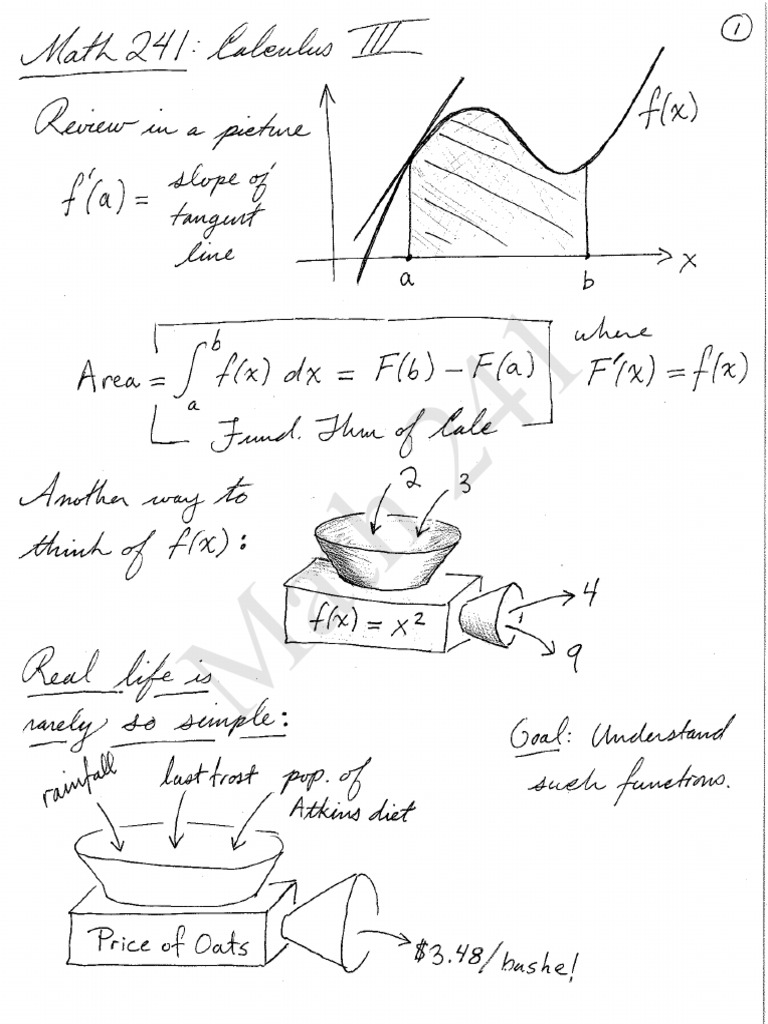 1
Math 241: Calculus III
Review in a picture
f'(a) = slope of
tangent
line
f(x)
x
a
b
Area = ∫_a^b f(x) dx = F(b) – F(a)
where
F'(x) = f(x)
Fund. Thm of Calc
Another way to
think of f(x):
2
3
f(x) = x²
4
9
Real life is
rarely so simple:
Goal: Understand
such functions.
rainfall
last frost
pop. of
Atkins diet
Price of Oats
$3.48/bushel
Math 241